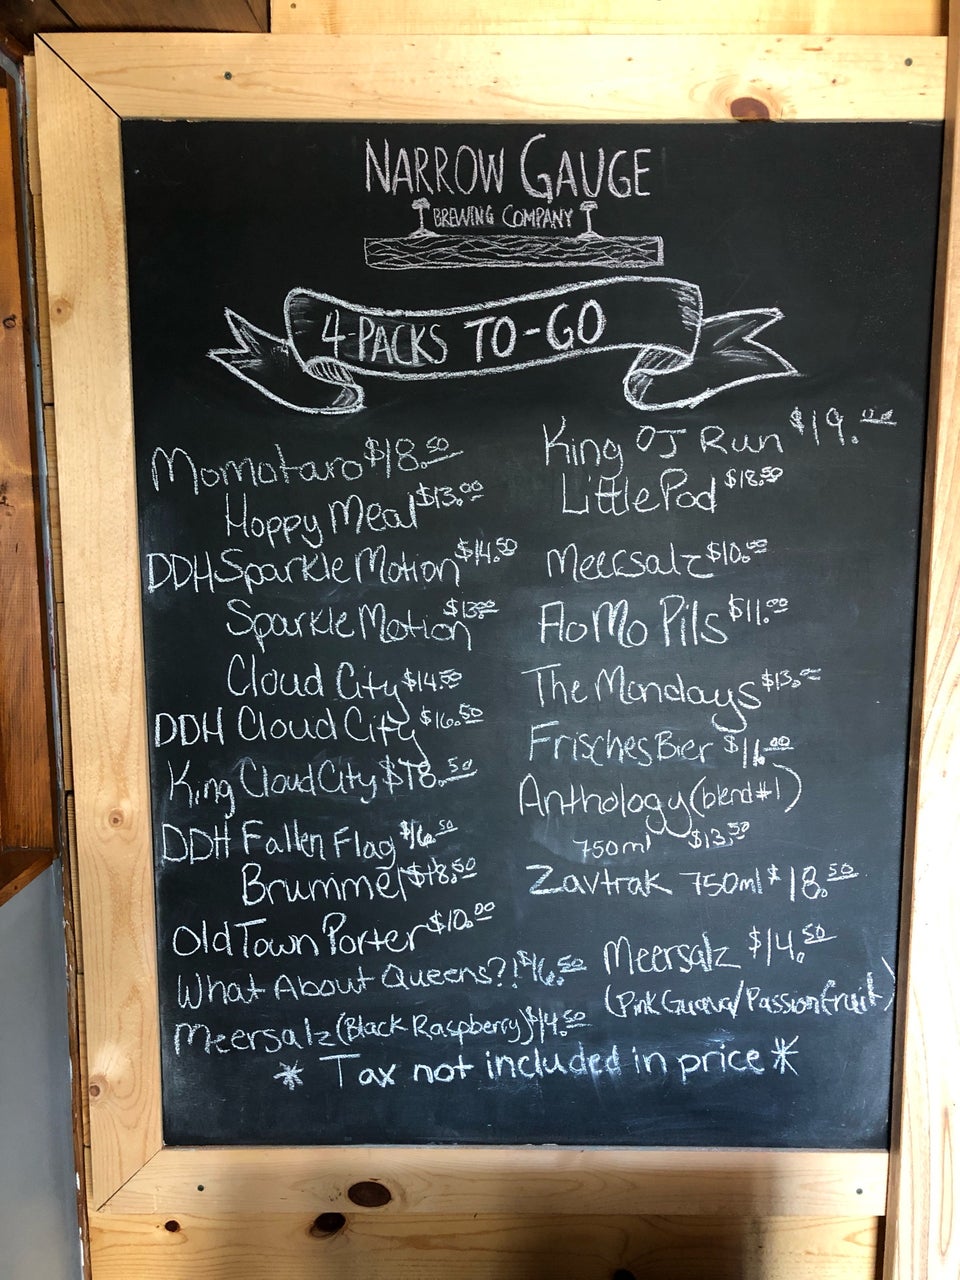 NARROW GAUGE
BREWING COMPANY
4-PACKS TO-GO
Momotaro $18.50
Hoppy Meal $13.00
DDH Sparkle Motion $14.50
Sparkle Motion $13.00
Cloud City $14.50
DDH Cloud City $16.50
King Cloud City $18.50
DDH Fallen Flag $16.50
Brummel $18.50
Old Town Porter $10.00
What About Queens?! $16.50
Meersalz (Black Raspberry) $14.50
King OJ Run $19.00
Little Pod $18.50
Meersalz $10.00
FloMo Pils $11.00
The Mondays $13.00
Frisches Bier $11.00
Anthology (blend #1)
750ml $13.50
Zavtrak 750ml $18.50
Meersalz $14.50
(Pink Guava/Passionfruit)
* Tax not included in price *